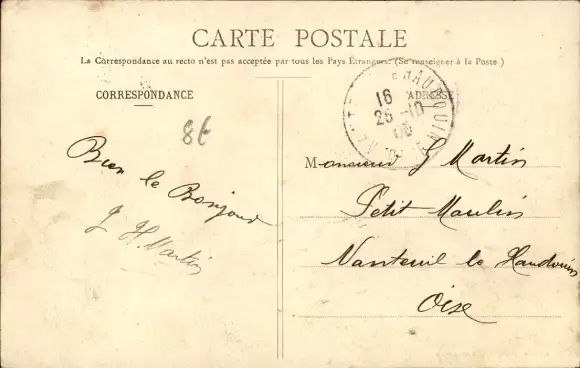 CARTE POSTALE
La Correspondance au recto n'est pas acceptée par tous les Pays Étrangers. (Se renseigner à la Poste.)
CORRESPONDANCE
ADRESSE
16
26 -10
8t
Bien le Bonjour
J H. Martin
Monsieur G Martin
Petit Moulin
Nanteuil le Haudouin
Oise